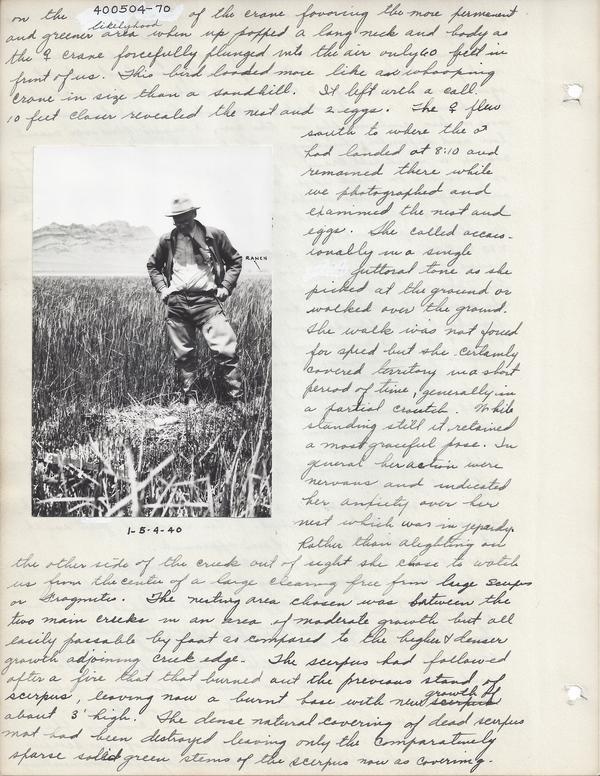 400504-70
on the likelyhood of the crane favoring the more permanent
and greener area when up popped a long neck and body as
the ♀ crane forcefully plunged into the air only 60 feet in
front of us. This bird looked more like a whooping
crane in size than a sandhill. It left with a call.
10 feet closer revealed the nest and 2 eggs. The ♀ flew
south to where the ♂
had landed at 8:10 and
remained there while
we photographed and
examined the nest and
eggs. She called occas-
ionally in a single
guttoral tone as she
picked at the ground or
walked over the ground.
She walk was not foued
for speed but she certainly
covered territory in a short
period of time, generally in
a partial croutch. While
standing still it retained
a most graceful pose. In
general her action were
nervous and indicated
her anxiety over her
nest which was in jepardy.
Rather than alighting on
RANCH
1-5-4-40
the other side of the creek out of sight she chose to watch
us from the center of a large clearing free from large scirpus
or Fragmites. The nesting area chosen was between the
two main creeks in an area of moderate growth but all
easily passable by foot as compared to the higher & denser
growth adjoining creek edge. The scirpus had followed
after a fire that that burned out the previous stand of
scirpus, leaving now a burnt base with new growth of scirpus
about 3' high. The dense natural covering of dead scirpus
mat had been destroyed leaving only the comparatively
sparse solid green stems of the scirpus now as covering.